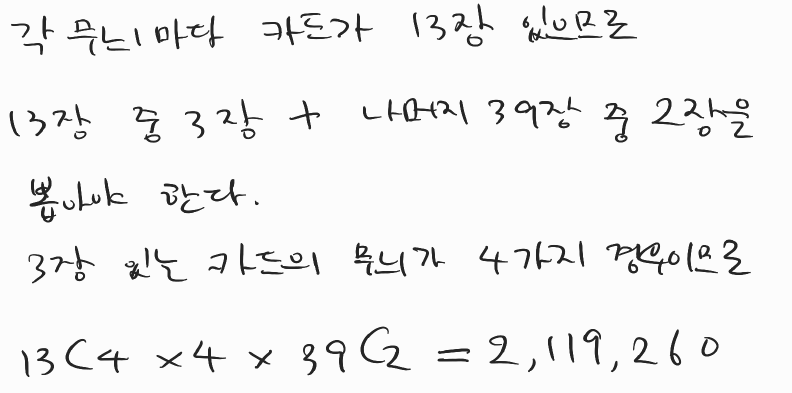 각 무늬마다 카드가 13장 있으므로
13장 중 3장 + 나머지 39장 중 2장을
뽑아야 한다.
3장 있는 카드의 무늬가 4가지 경우이므로
13C4 ×4 × 39C2 = 2,119,260